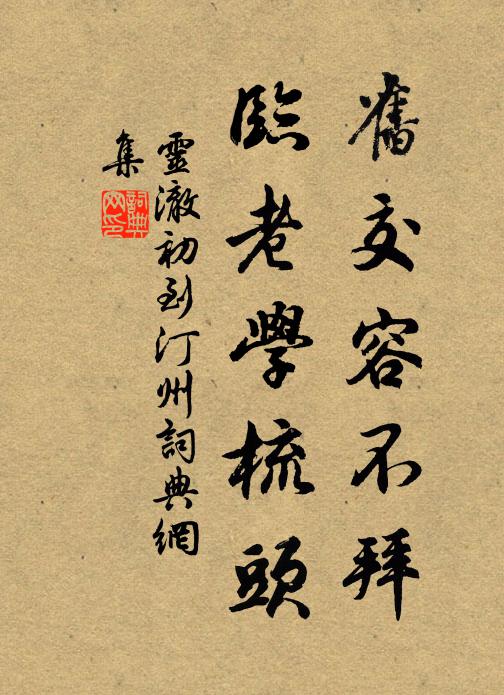 舊交容不拜
臨老學梳頭
靈澈初到汀州詞典網
集
詞典
网印